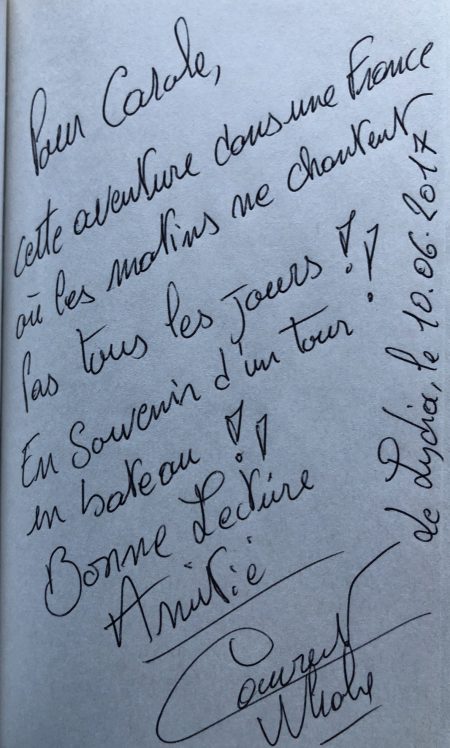 Pour Carole,
cette aventure dans une France
où les matins ne chantent
pas tous les jours !!
En Souvenir d'un tour
en bateau !!
Bonne Lecture
Amitié
de Lydia, le 10.06.2017